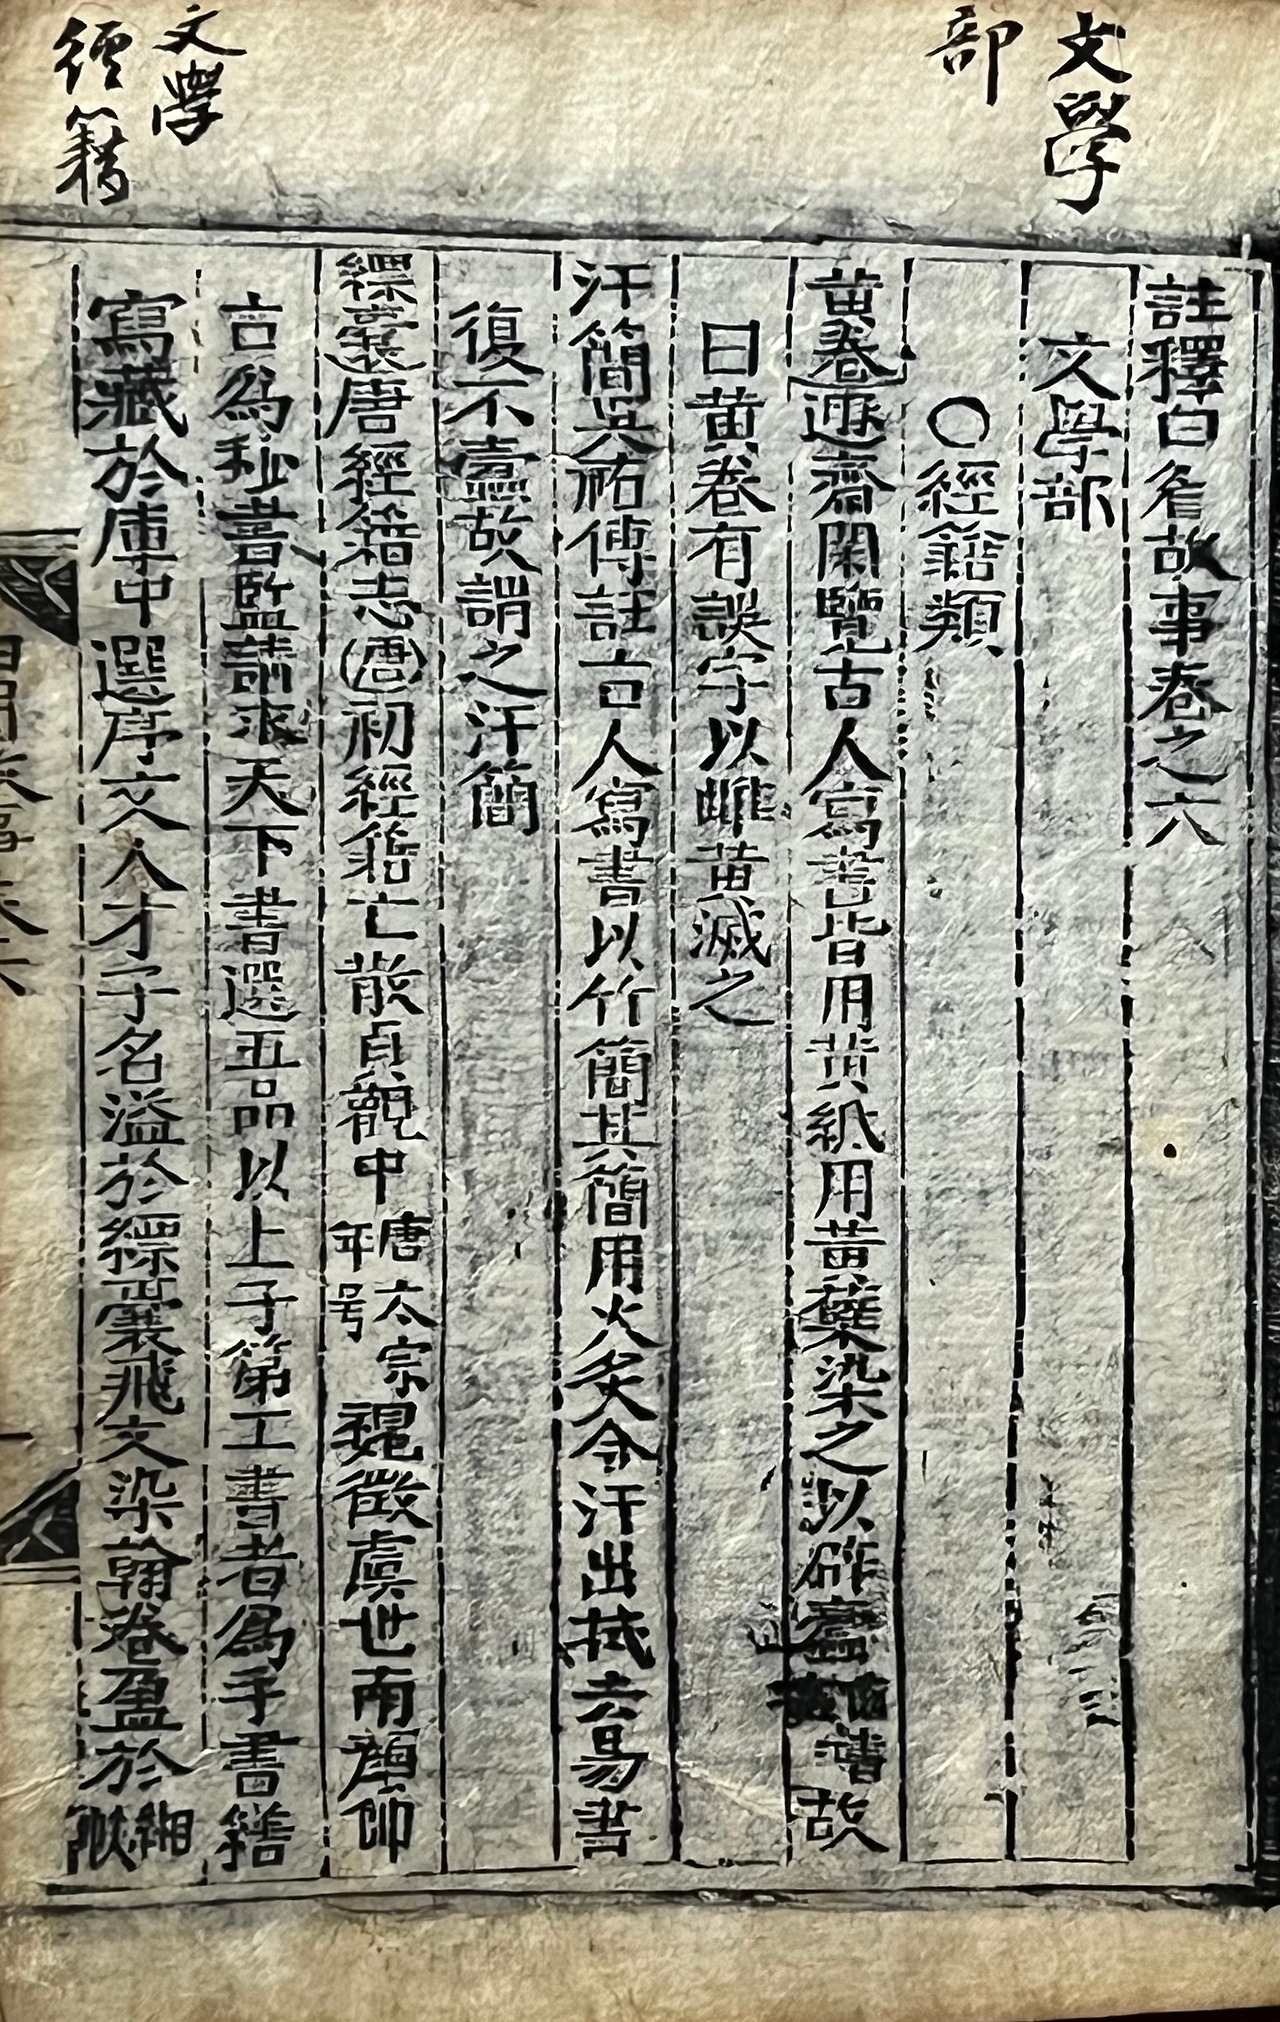 文學
部
文學
經籍
註釋白眉故事卷之六
文學部
○經籍類
黃卷遯齋閑覽古人寫書皆用黃紙用黃蘗染之以辟蠹故
曰黃卷有誤字以雌黃滅之
汗簡吳祐傳註古人寫書以竹簡其簡用火炙令汗出拭去易書
復不蠹故謂之汗簡
縹囊唐經籍志唐初經籍亡散貞觀中唐太宗年号魏徵虞世南顏師
古爲秘書監請求天下書選五品以上子弟工書者爲手書籍
寫藏於庫中選序文人才子名溢於縹囊飛文染翰卷盈於緗帙